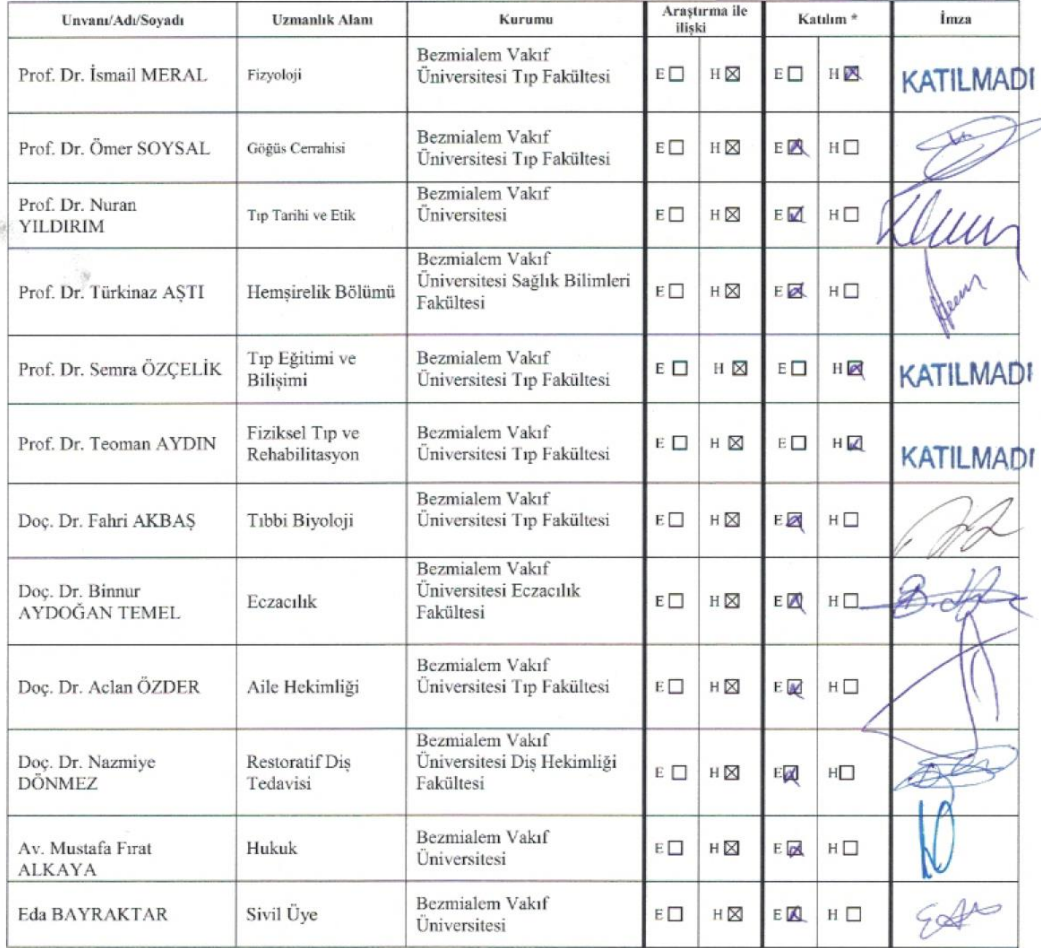 Unvanı/Adı/Soyadı Uzmanlık Alanı Kurumu Araştırma ile ilişki Katılım * İmza
Prof. Dr. İsmail MERAL Fizyoloji Bezmialem Vakıf
Üniversitesi Tıp Fakültesi E ☐ H ☒ E ☐ H ☒ KATILMADI
Prof. Dr. Ömer SOYSAL Göğüs Cerrahisi Bezmialem Vakıf
Üniversitesi Tıp Fakültesi E ☐ H ☒ E ☒ H ☐
Prof. Dr. Nuran
YILDIRIM Tıp Tarihi ve Etik Bezmialem Vakıf
Üniversitesi E ☐ H ☒ E ☒ H ☐
Prof. Dr. Türkinaz AŞTI Hemşirelik Bölümü Bezmialem Vakıf
Üniversitesi Sağlık Bilimleri
Fakültesi E ☐ H ☒ E ☒ H ☐
Prof. Dr. Semra ÖZÇELİK Tıp Eğitimi ve
Bilişimi Bezmialem Vakıf
Üniversitesi Tıp Fakültesi E ☐ H ☒ E ☐ H ☒ KATILMADI
Prof. Dr. Teoman AYDIN Fiziksel Tıp ve
Rehabilitasyon Bezmialem Vakıf
Üniversitesi Tıp Fakültesi E ☐ H ☒ E ☐ H ☒ KATILMADI
Doç. Dr. Fahri AKBAŞ Tıbbi Biyoloji Bezmialem Vakıf
Üniversitesi Tıp Fakültesi E ☐ H ☒ E ☒ H ☐
Doç. Dr. Binnur
AYDOĞAN TEMEL Eczacılık Bezmialem Vakıf
Üniversitesi Eczacılık
Fakültesi E ☐ H ☒ E ☒ H ☐
Doç. Dr. Aclan ÖZDER Aile Hekimliği Bezmialem Vakıf
Üniversitesi Tıp Fakültesi E ☐ H ☒ E ☒ H ☐
Doç. Dr. Nazmiye
DÖNMEZ Restoratif Diş
Tedavisi Bezmialem Vakıf
Üniversitesi Diş Hekimliği
Fakültesi E ☐ H ☒ E ☒ H ☐
Av. Mustafa Fırat
ALKAYA Hukuk Bezmialem Vakıf
Üniversitesi E ☐ H ☒ E ☒ H ☐
Eda BAYRAKTAR Sivil Üye Bezmialem Vakıf
Üniversitesi E ☐ H ☒ E ☒ H ☐